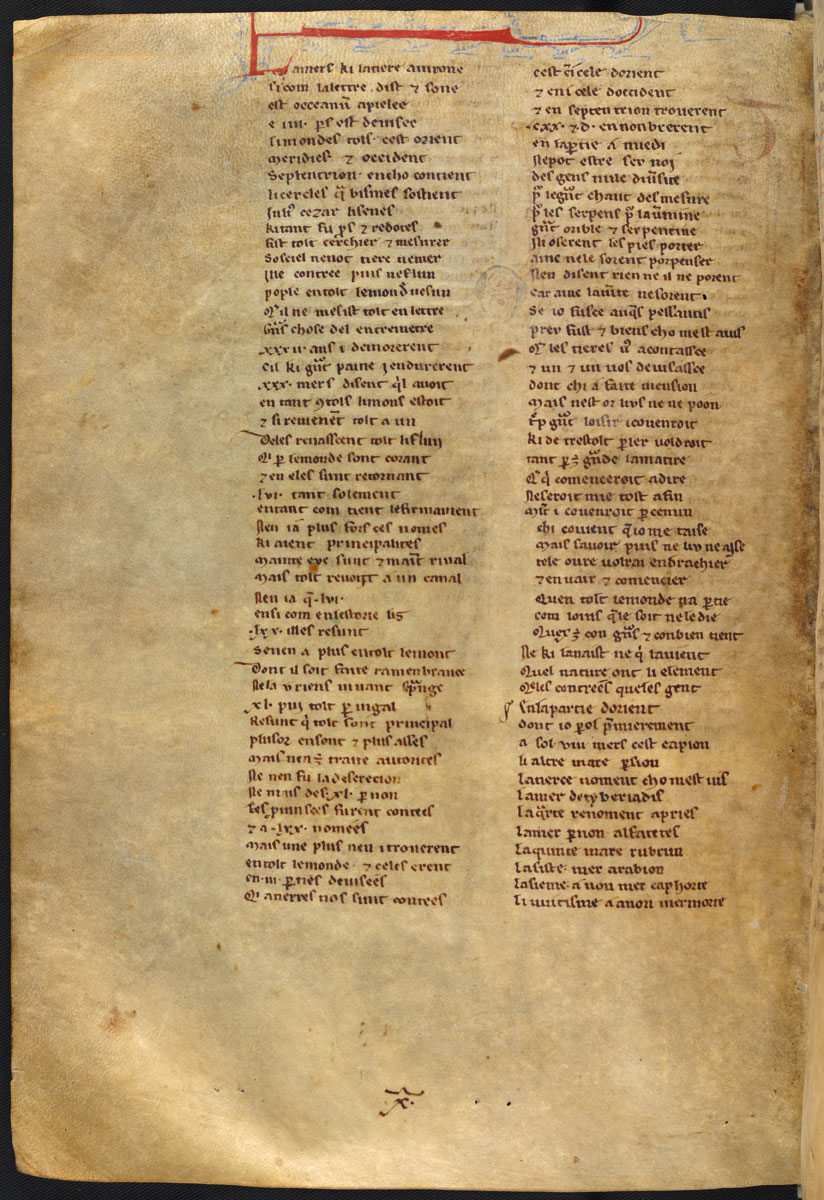 La mers ki la tiere avirone
si com la lettre dist ⁊ sone
est occeanū apielee
e .iiii. ꝑs est devisee
Li mondes tols. cest orient
meridies ⁊ occident
Septentrion. en cho contient
li cercles q̄ bismes sostient
Juł' cezar li senes
ki tant fu ꝓs ⁊ redotes
fist tolt cerchier ⁊ mesurer
So ciel nen ot tiere ne mer
Ne contree puis ne flun
pople en tolt le mond
Q'il ne mesist tolt en lettre
Gr̄s chose del entremetre
.xxxii. ans i demorerent
Cil ki gr̄t paine i endurerent
.xxx. mers disent q'l avoit
en tant ꝯ tols li mons estoit
⁊ si revienēt tolt a un
Deles renascent tolt li flun
Q' ꝑ le monde sont corant
⁊ en eles sunt retornant
.lvi. tant solement
en tant com tient le firmament
Nen ia plus fors ces nomes
ki aient principalites
mainte eve sunt ⁊ maīt rival
mais tolt revoıſt a un canal
Nen ia q̄ .lvi.
ensi com en lestorie lis
.lxx. illes resunt
Se nen a plus en tolt le mont
Dont il soit faite ramenbrance
Ne la v riens vivant
xl. pui tolt ꝑ ingal
Resunt q' tolt sont principal
plusor en sont ⁊ plus asses
mais nen ē traite autorites
Ne nen fu la descrecion
Ne mais des .xl. ꝑ non
Les furent contees
⁊ a .lxx. nomees
mais une plus nen i troverent
en tolt le monde. ⁊ celes erent
en .iii. ꝑties devisees
Q' a nerres nos sunt contees
cest ē i cele dorient
⁊ en i cele doccident
⁊ en septentrion troverent
.cxx. ⁊ .v. en nonbrerent
en la ꝑtie a miedi
Ne pot estre ser noi
des gens nule div̄site
ꝑ le gr̄t chaut desmesure
ꝑ les serpens ꝑ la v̄mine
gr̄t orible ⁊ serpentine
Ni oserent les pies porter
ainc ne le sorent porpenser
Nen disent rien ne il ne porent
car ainc la v̄ite ne sorent.
Se io fusce auq̄s pessantis
prev fust ⁊ biens cho mest avis
Q' les tieres v9 acontasce
⁊ un ⁊ un vos devisasce
dont chi a faite mension
Mais nest or lius ne ne poon
t̄p gr̄t loisir i covenroit
ki de trestolt ꝑler voldroit
tant ꝑ ē gr̄de la matire
Q' q' comenceroit a dire
Ne seroit mie tost a fin
Ml't i covenroit ꝑcemin
chi covient q̄ io me taise
Mais savoir puis ne liv ne aise
tele ovre volrai enbrachier
⁊ en vair ⁊ comencier
Quen tolt le monde na ꝑtie
com loins q̄le soit ne le die
Q'ex ē con gr̄s ⁊ conbien tient
Ne ki la naist ne q' la vient
Quel nature ont li element
Q'les contrees queles gent
En la partie dorient
dont io ꝑol p̄mierement
a sol .viii. mers cest capion
li altre mare ꝑsion
La tierce noment cho mest vis
La mer de tyberiadis
La q̄rte renoment apries
La mer ꝑ non alfatetes
La quinte mare rubrun
La siste. mer arabion
La sieme. a non mer caphorte
Li vuitisme a a non mer morte
x.